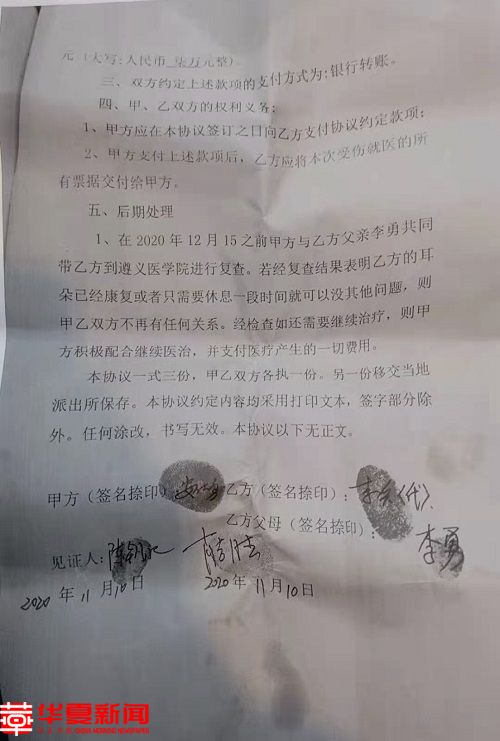 元（大写：人民币 柒万元整）
三、双方约定上述款项的支付方式为：银行转账。
四、甲、乙双方的权利义务：
1、甲方应在本协议签订之日向乙方支付协议约定款项；
2、甲方支付上述款项后，乙方应将本次受伤就医的所
有票据交付给甲方。
五、后期处理
1、在 2020 年 12 月 15 之前甲方与乙方父亲李勇共同
带乙方到遵义医学院进行复查。若经复查结果表明乙方的耳
朵已经康复或者只需要休息一段时间就可以没其他问题，则
甲乙双方不再有任何关系。经检查如还需要继续治疗，则甲
方积极配合继续医治，并支付医疗产生的一切费用。
本协议一式三份，甲乙双方各执一份。另一份移交当地
派出所保存。本协议约定内容均采用打印文本，签字部分除
外。任何涂改，书写无效。本协议以下无正文。
甲方（签名捺印） 乙方（签名捺印）：
乙方父母（签名捺印）：李勇
见证人：
2020 年 11 月 10 日 2020 年 11 月 10 日
华夏新闻